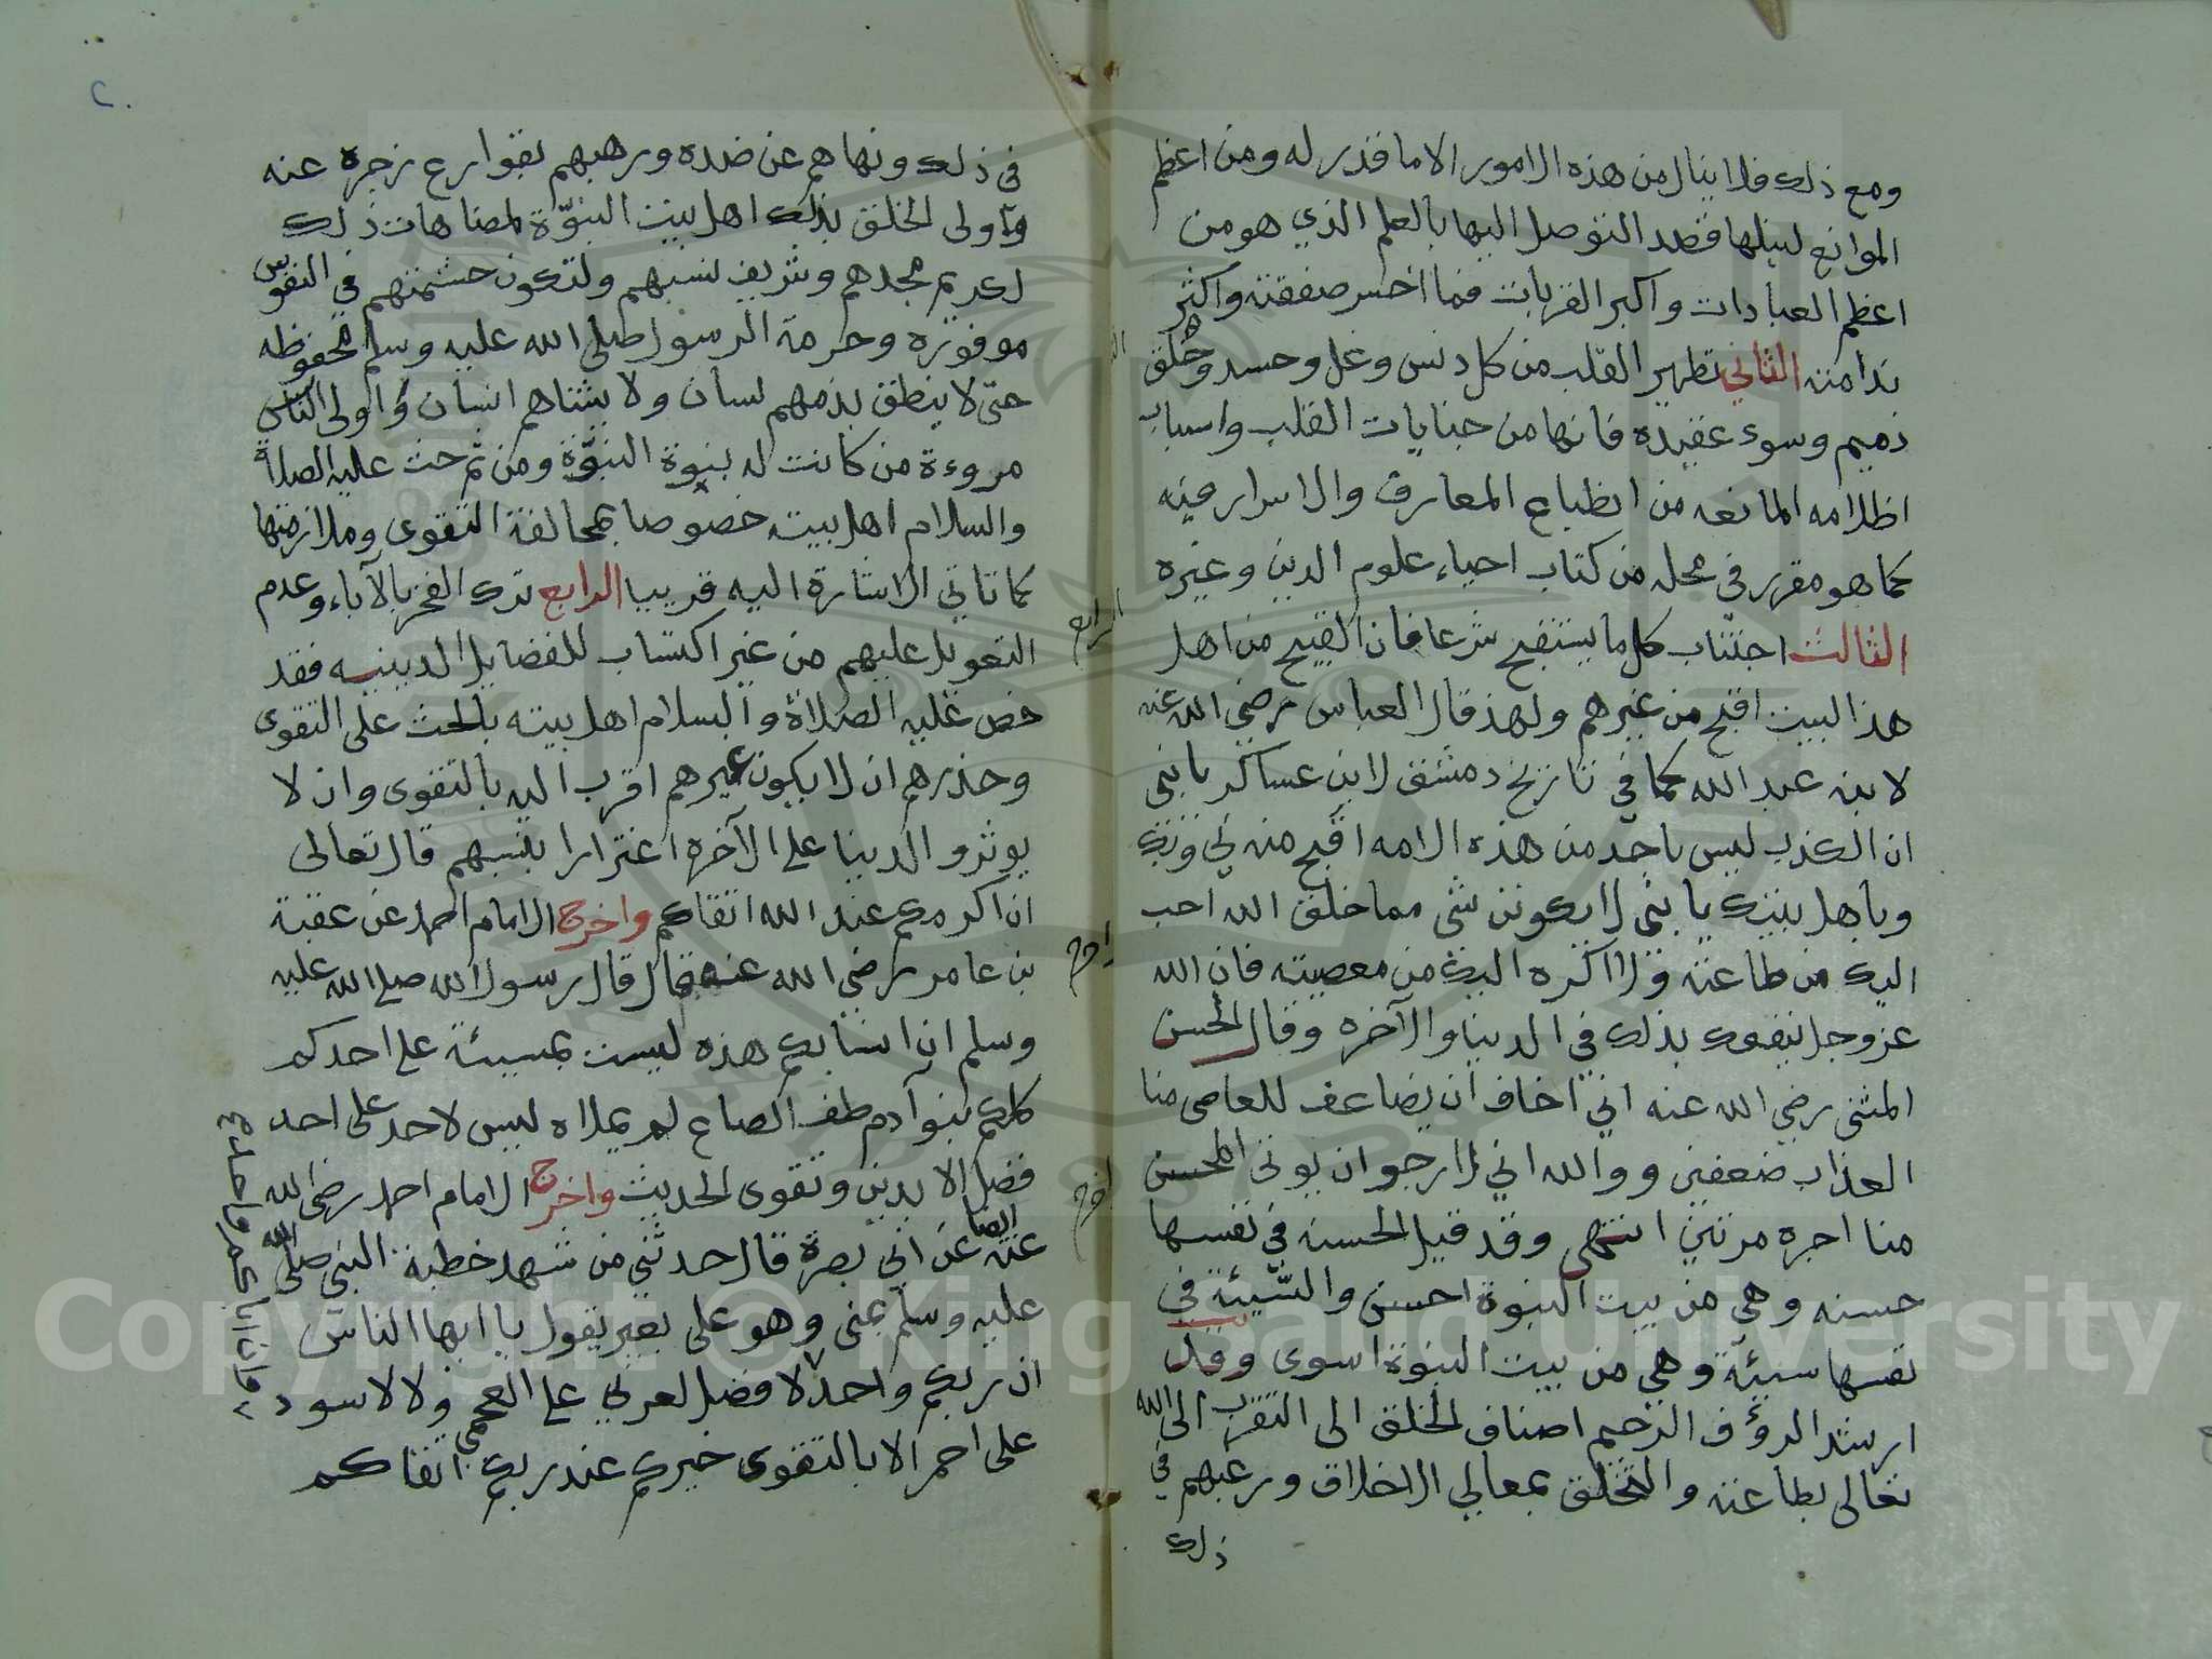 ومع ذلك فلا ينال من هذه الامور الا ما قدر له ومن اعظم
الموانع لنيلها قصد التوصل اليها بالعلم الذي هو من
اعظم العبادات واكبر القربات فما اخسر صفقته واكثر
ندامته الثاني تطهير القلب من كل دنس وغل وحسد وخلق
ذميم وسوء عقيده فانها من جنايات القلب واسباب
اظلامه المانعه من انطباع المعارف والاسرار فيه
كما هو مقرر في محله من كتاب احياء علوم الدين وغيره
الثالث اجتناب كل ما يستقبح شرعا فان القبيح من اهل
هذا البيت اقبح من غيرهم ولهذ قال العباس رضي الله عنه
لابنه عبد الله كما في تاريخ دمشق لابن عساكر يا بني
ان الكذب ليس باحد من هذه الامه اقبح منه بي وبك
وباهل بيتك يا بني لا يكونن شي مما خلق الله احب
اليك من طاعته ولا اكره اليك من معصيته فان الله
عز وجل ينفعك بذلك في الدنيا والآخره وقال الحسن
المثنى رضي الله عنه اني اخاف ان يضاعف للعاصي منا
العذاب ضعفين ووالله اني لارجو ان يوتى المحسن
منا اجره مرتين انتهى وقد قيل الحسنه في نفسها
حسنه وهي من بيت النبوة احسن والسّيئة في
نفسها سيئة وهي من بيت النبوة اسوى وقد
ارشد الرؤف الرحيم اصناف الخلق الى التقرب الى الله
تعالى بطاعته والتخلق بمعالي الاخلاق ورغبهم في
ذلك
٢٠
في ذلك ونهاهم عن ضده ورهبهم بقوارع زجره عنه
واولى الخلق بذلك اهل بيت النبوّة لمضاهات ذلك
لكريم مجدهم وشريف نسبهم ولتكون حشمتهم في النفوس
موفوره وحرمة الرسول صلى الله عليه وسلم محفوظه
حتى لا ينطق بذمهم لسان ولا يشناهم انسان واولى الناس
مروءة من كانت له بنوة النبوّة ومن ثم حث عليه الصلاة
والسلام اهل بيته خصوصا بمحالفة التقوى وملازمتها
كما تاتي الاشارة اليه قريبا الرابع ترك الفخر بالآباء وعدم
التعويل عليهم من غير اكتساب للفضايل الدينيه فقد
خص عليه الصلاة والسلام اهل بيته بالحث على التقوى
وحذرهم ان لا يكون غيرهم اقرب اليه بالتقوى وان لا
يوثرو الدنيا على الآخره اغترارا بنسبهم قال تعالى
ان اكرمكم عند الله اتقاكم واخرج الامام احمد عن عقبة
بن عامر رضي الله عنه قال قال رسول الله صلى الله عليه
وسلم ان انسابكم هذه ليست بمسيئة على احدكم
كلكم بنو آدم طف الصاع لم يملاه ليس لاحد على احد
فضل الا بدين وتقوى الحديث واخرج الامام احمد رضي الله
عنه ايضا عن ابي بصرة قال حدثني من شهد خطبة النبي صلى الله
عليه وسلم بمنى وهو على بعير يقول يا ايها الناس
ان ربكم واحد لا فضل لعربي على العجمي ولا لاسود
على احمر الا بالتقوى خيركم عند ربكم اتقاكم
وان اباكم واحد
الرابع
اخرج
اخرج
Copyright © King Saud University